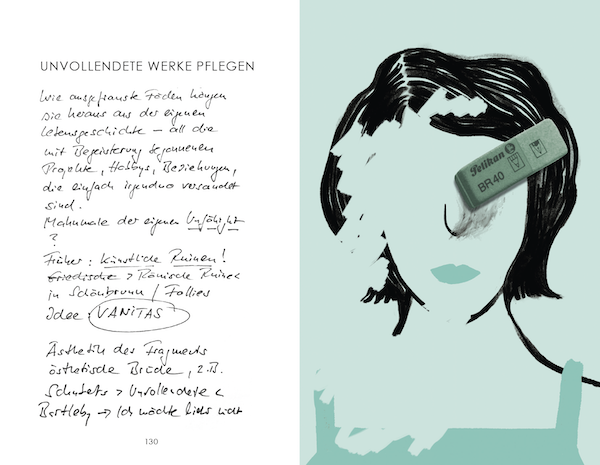 UNVOLLENDETE WERKE PFLEGEN
Wie ausgefranste Fäden hängen
sie heraus aus der eigenen
Lebensgeschichte – all die
mit Begeisterung begonnenen
Projekte, Hobbys, Beziehungen,
die einfach irgendwo versandet
sind.
Mahnmale der eigenen Unfähigkeit
?
Früher: Künstliche Ruinen!
Griechische > Römische Ruinen
in Schönbrunn / Follies
Idee: VANITAS
Ästhetik des Fragments
ästhetische Brüche, z.B.
Schuberts > Unvollendete <
Bartleby → Ich möchte lieber nicht
130
Pelikan
BR40